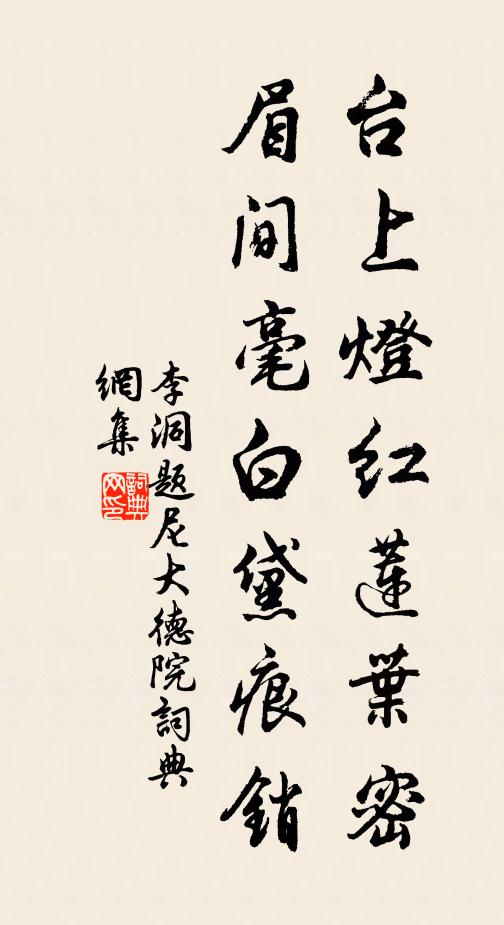 台上燈红蓮葉密
眉间毫白黛痕銷
李洞题尼大德院詞典
網集
詞典
网印